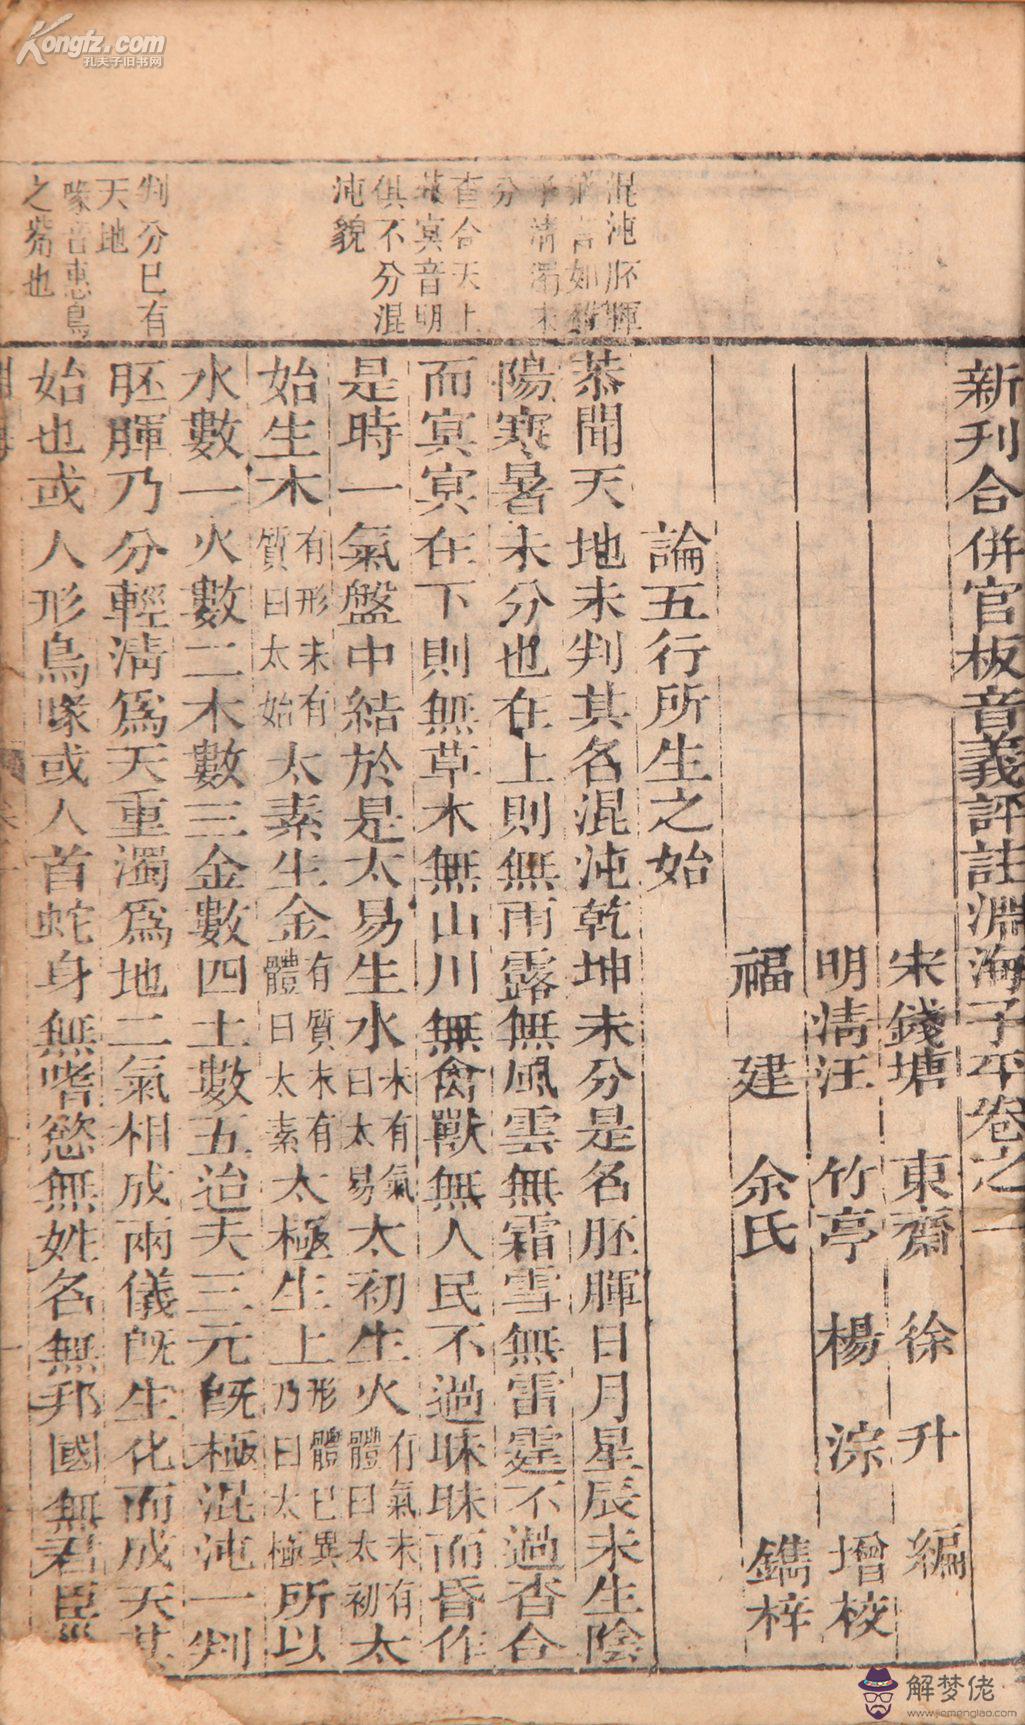 Kongfz.com
孔夫子旧书网
混沌胚暉
清濁未
分
杳合天上
冥音明
俱不分混
沌貌
判分已有
天地
喙音惠鳥
之觜也
新刊合併官板音義評註淵海子平卷之一
宋錢塘 東齋 徐升 編
明清江 竹亭 楊淙 增校
福建 余氏 鐫梓
論五行所生之始
恭聞天地未判其名混沌乾坤未分是名胚暉日月星辰未生陰
陽寒暑未分也在上則無雨露無風雲無霜雪無雷霆不過杳合
而冥冥在下則無草木無山川無禽獸無人民不過昧昧而昏作
是時一氣盤中結於是太易生水未有氣曰太易太初生火有氣未有體曰太初太
始生木有形未有質曰太始太素生金有質未有體曰太素太極生土形體已異乃曰太極所以
水數一火數二木數三金數四土數五迨夫三元既極混沌一判
胚暉乃分輕清爲天重濁爲地二氣相成兩儀既生化而成天其
始也或人形鳥喙或人首蛇身無嗜慾無姓名無邦國無君臣
解梦佬
www.jiemenglao.com